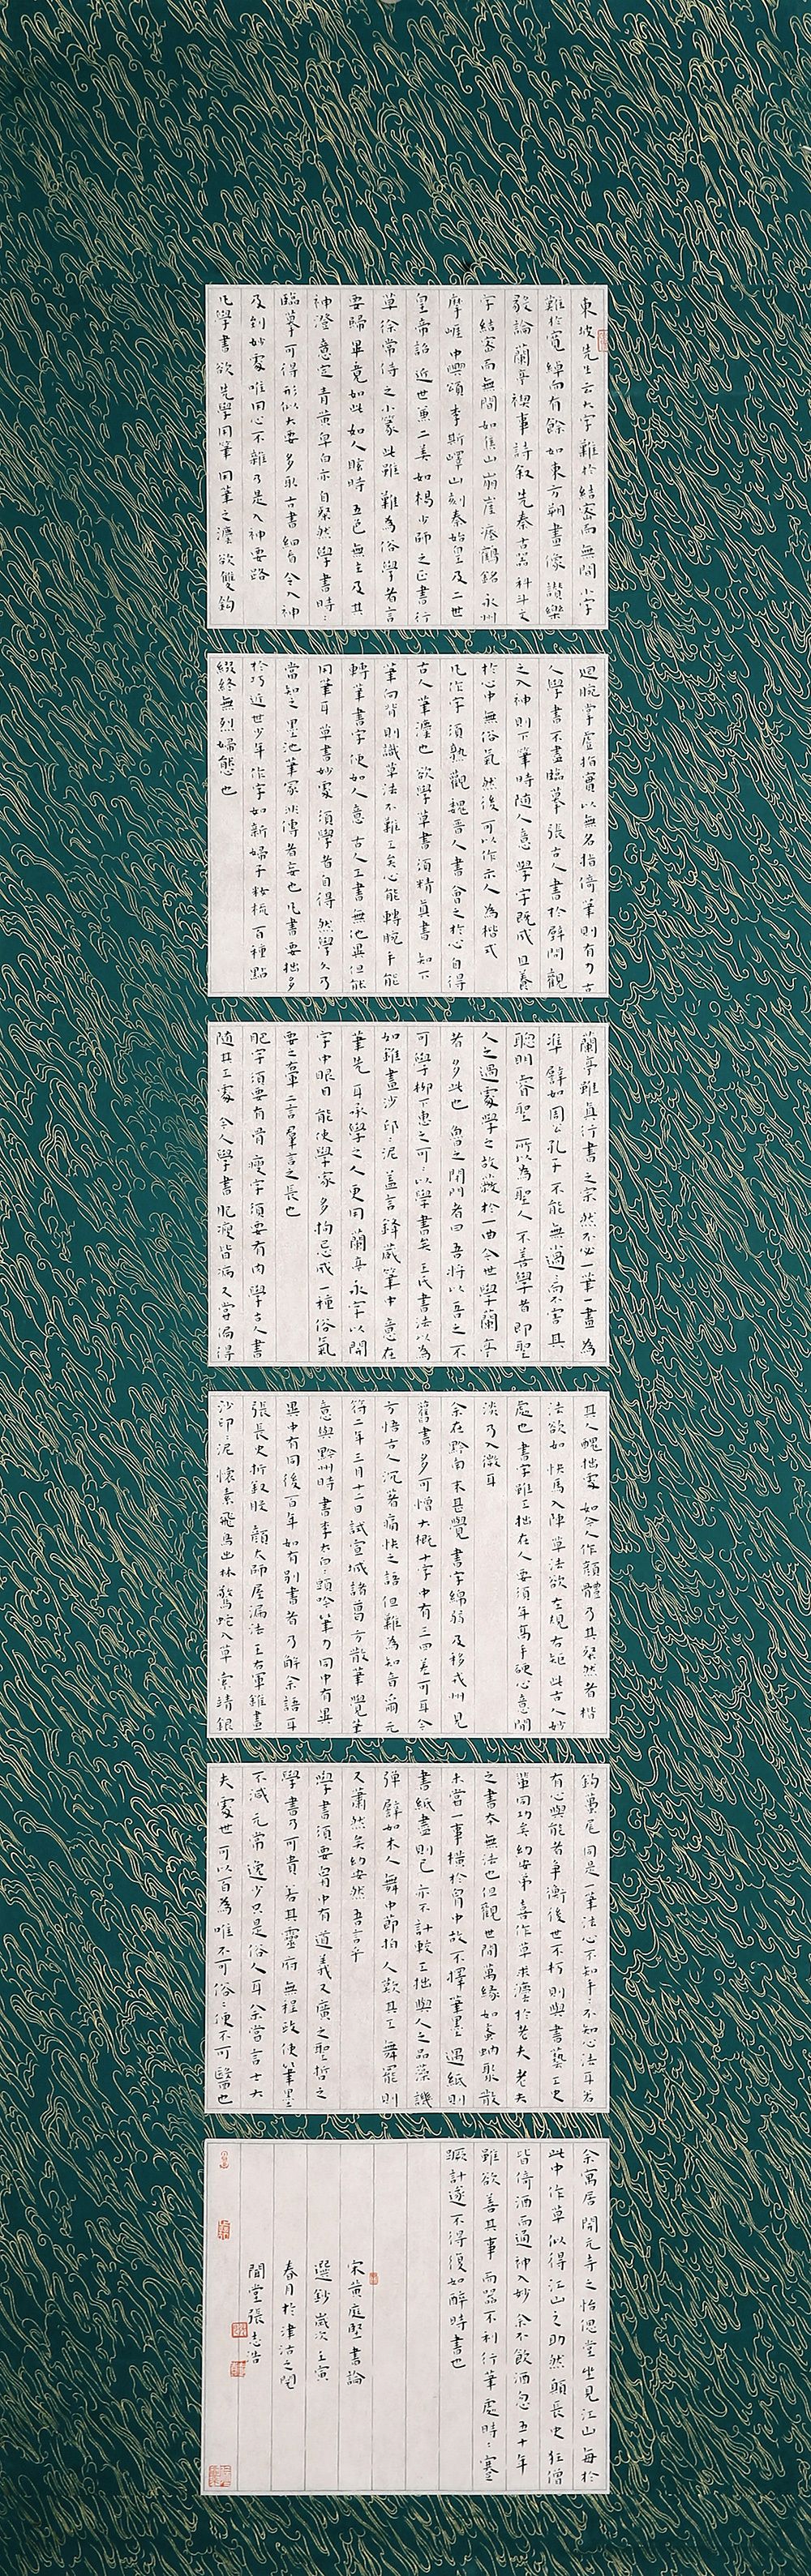 東坡先生云大字難於結密而無間小字
難於寬綽而有餘如東方朔畫像讚樂
毅論蘭亭禊事詩叙先秦古器科斗文
字結密而無間如焦山崩崖瘞鶴銘永州
摩崖中興頌李斯嶧山刻秦始皇及二世
皇帝詔近世兼二美如楊少師之正書行
草徐常侍之小篆此雖難為俗學者言
要歸畢竟如此如人眩時五色無主及其
神澄意定青黃皁白亦自粲然學書時時
臨摹可得形似大要多取古書細看令入神
乃到妙處唯用心不雜乃是入神要路
凡學書欲先學用筆用筆之法欲雙鈎
迴腕掌虛指實以無名指倚筆則有力古
人學書不盡臨摹張古人書於壁間觀
之入神則下筆時隨人意學字既成且養
於心中無俗氣然後可以作示人為楷式
凡作字須熟觀魏晉人書會之於心自得
古人筆法也欲學草書須精真書知下
筆向背則識草法不難工矣心能轉腕手能
轉筆書字便如人意古人工書無他異但能
用筆耳草書妙處須學者自得然學久乃
當知之墨池筆冢非傳者妄也凡書要拙多
於巧近世少年作字如新婦子粧梳百種點
綴終無烈婦態也
蘭亭雖真行書之宗然不必一筆一畫為
準譬如周公孔子不能無小過過而不害其
聰明睿聖所以為聖人不善學者即聖
人之過處學之故蔽於一曲今世學蘭亭
者多此也魯之閉門者曰吾將以吾之不
可學柳下惠之可可以學書矣王氏書法以為
如錐畫沙印印泥蓋言鋒藏筆中意在
筆先耳承學之人更用蘭亭永字以開
字中眼目能使學家多拘忌成一種俗氣
要之右軍二言羣言之長也
肥字須要有骨瘦字須要有肉學古人書
隨其工處今人學書肥瘦皆病又常偏得
其人醜拙處如今人作顏體乃其粲然者楷
法欲如快馬入陣草法欲左規右矩此古人妙
處也書字雖工拙在人要須年高手硬心意閒
淡乃入微耳
余在黔南未甚覺書字綿弱及移戎州見
舊書多可憎大概十字中有三四差可耳今
方悟古人沉著痛快之語但難為知音爾元
符二年三月十二日試宣城諸葛方散筆覺筆
意與黔州時書李太白白頭吟筆力同中有異
異中有同後百年如有別書者乃解余語耳
張長史折釵股顏太師屋漏法王右軍錐畫
沙印印泥懷素飛鳥出林驚蛇入草索靖銀
鈎蠆尾同是一筆法心不知手手不知心法耳若
有心與能者爭衡後世不朽則與書藝工史
輩同功矣幼安弟喜作草求法於老夫老夫
之書本無法也但觀世間萬緣如蚊蚋聚散
未嘗一事橫於胷中故不擇筆墨遇紙則
書紙盡則已亦不計較工拙與人之品藻譏
彈譬如木人舞中節拍人歎其工舞罷則
又蕭然矣幼安然吾言乎
學書須要胷中有道義又廣之聖哲之
學書乃可貴若其靈府無程政使筆墨
不減元常逸少只是俗人耳余嘗言士大
夫處世可以百為唯不可俗俗便不可醫也
余寓居開元寺之怡偲堂坐見江山每於
此中作草似得江山之助然顛長史狂僧
皆倚酒而通神入妙余不飲酒忽五十年
雖欲善其事而器不利行筆處時時蹇
蹶計遂不得復如醉時書也
宋黃庭堅書論
選鈔歲次壬寅
春月於津沽之
閒堂張志浩